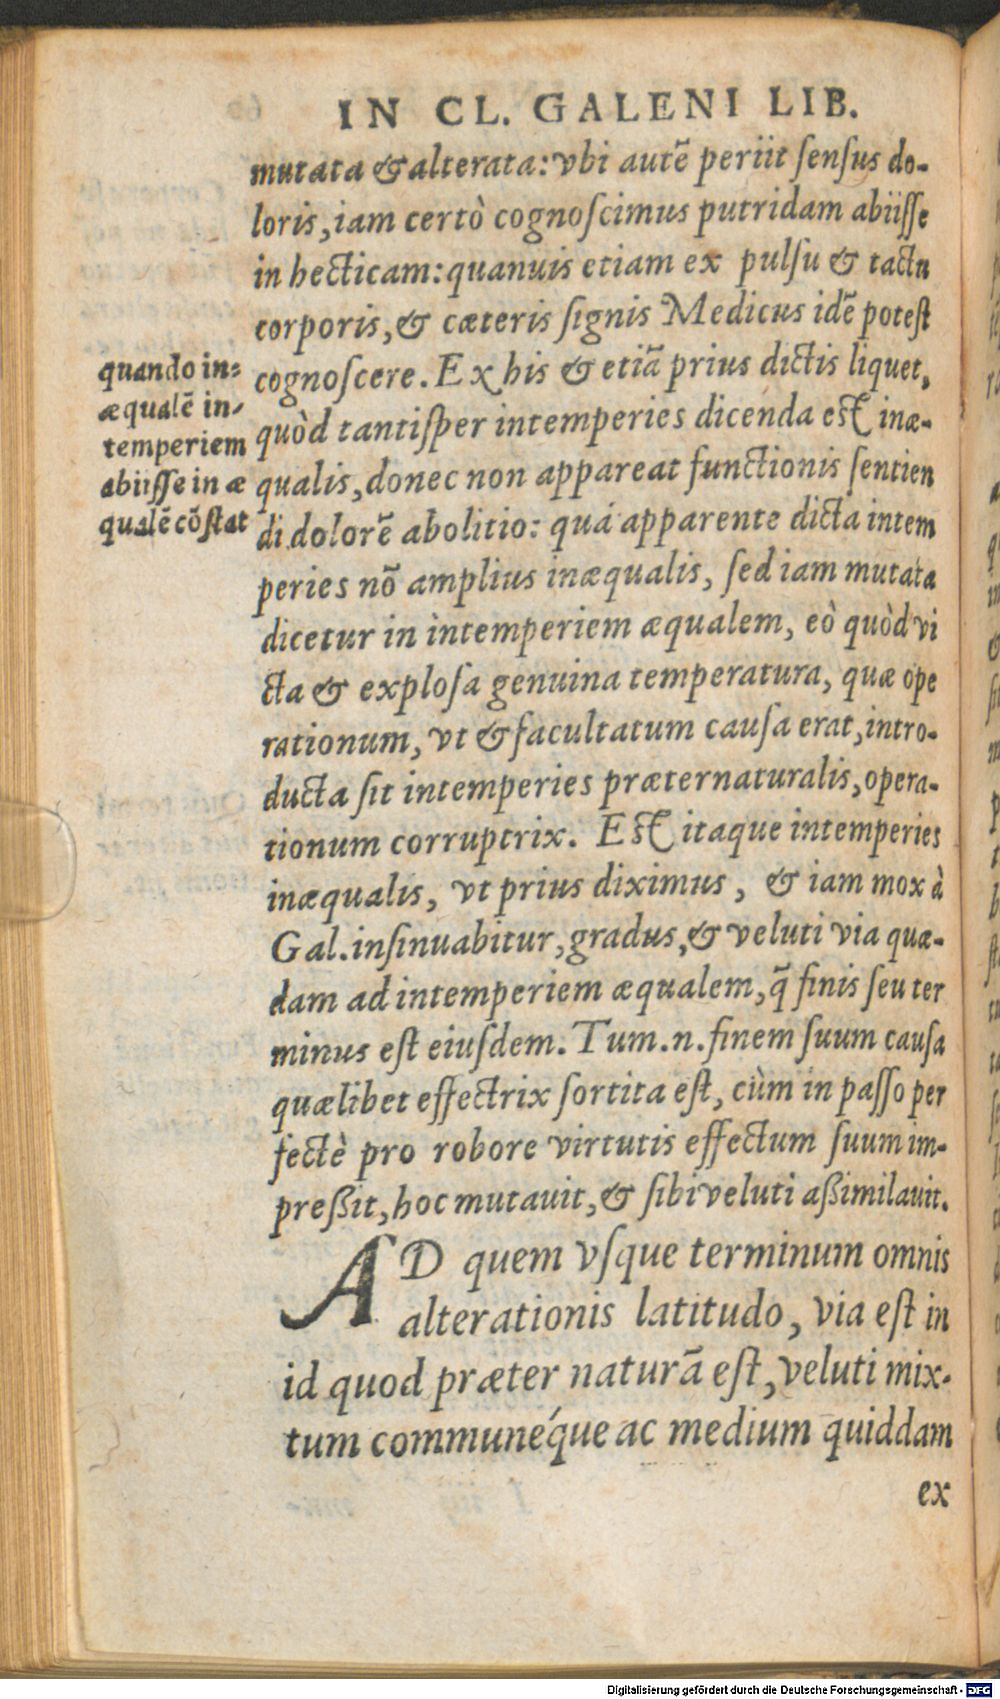 IN CL. GALENI LIB.
mutata & alterata: vbi autē periit ſenſus do-
loris, iam certò cognoſcimus putridam abiiſſe
in hecticam: quanuis etiam ex pulſu & tactu
corporis, & cæteris ſignis Medicus idē poteſt
cognoſcere. Ex his & etiā prius dictis liquet,
quòd tantiſper intemperies dicenda eſt inæ-
qualis, donec non appareat functionis ſentien
di dolorē abolitio: quá apparente dicta intem
peries nō amplius inæqualis, ſed iam mutata
dicetur in intemperiem æqualem, eò quòd vi
cta & exploſa genuina temperatura, quæ ope
rationum, vt & facultatum cauſa erat, intro-
ducta ſit intemperies præternaturalis, opera-
tionum corruptrix. Eſt itaque intemperies
inæqualis, vt prius diximus, & iam mox à
Gal. inſinuabitur, gradus, & veluti via quæ-
dam ad intemperiem æqualem, q̄ finis ſeu ter
minus eſt eiuſdem. Tum .n. finem ſuum cauſa
quælibet effectrix ſortita eſt, cùm in paſſo per
fectè pro robore virtutis effectum ſuum im-
preßit, hoc mutauit, & ſibi veluti aßimilauit.
AD quem vſque terminum omnis
alterationis latitudo, via eſt in
id quod præter naturā eſt, veluti mix-
tum communéque ac medium quiddam
ex
quando in-
æqualē in-
temperiem
abiiſſe in æ
qualē cōſtat
Digitalisierung gefördert durch die Deutsche Forschungsgemeinschaft - DFG